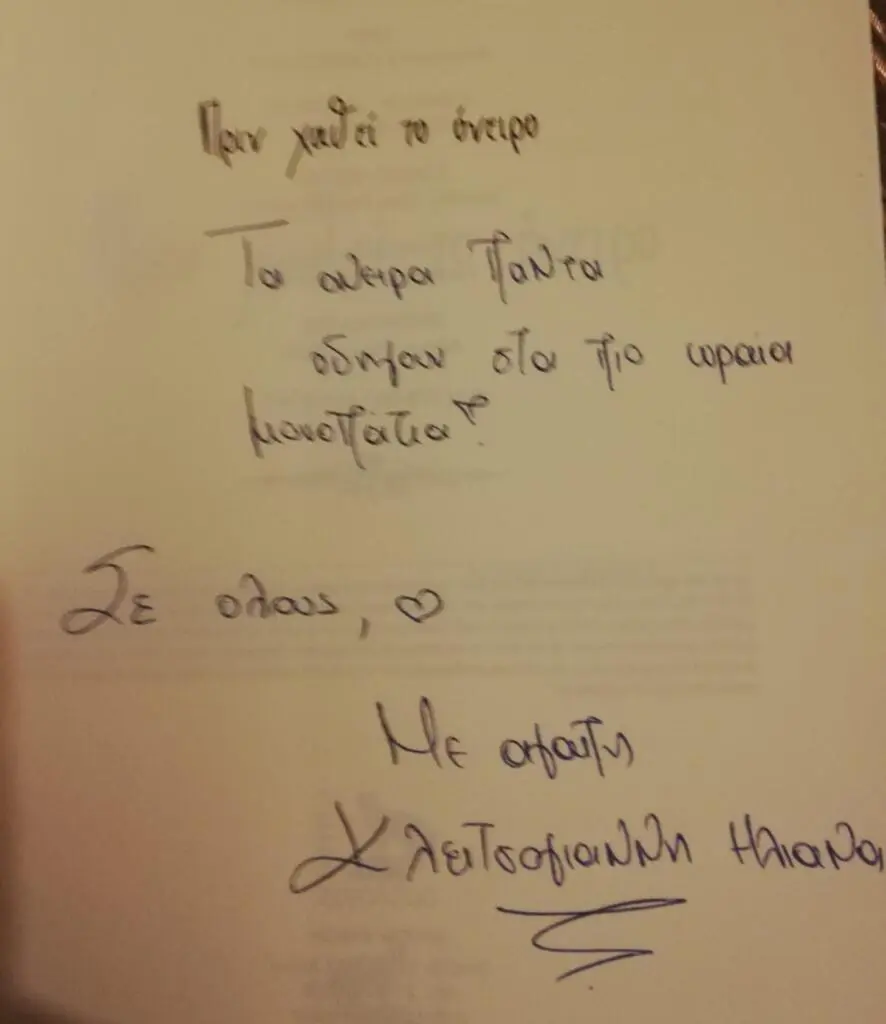 Πριν χαθεί το όνειρο
Τα ονειρα παντα
οδηγουν στα πιο ωραια
μονοπάτια!
Σε ολους, ♡
Με αγαπη
Κλειτσογιαννη Ηλιανα